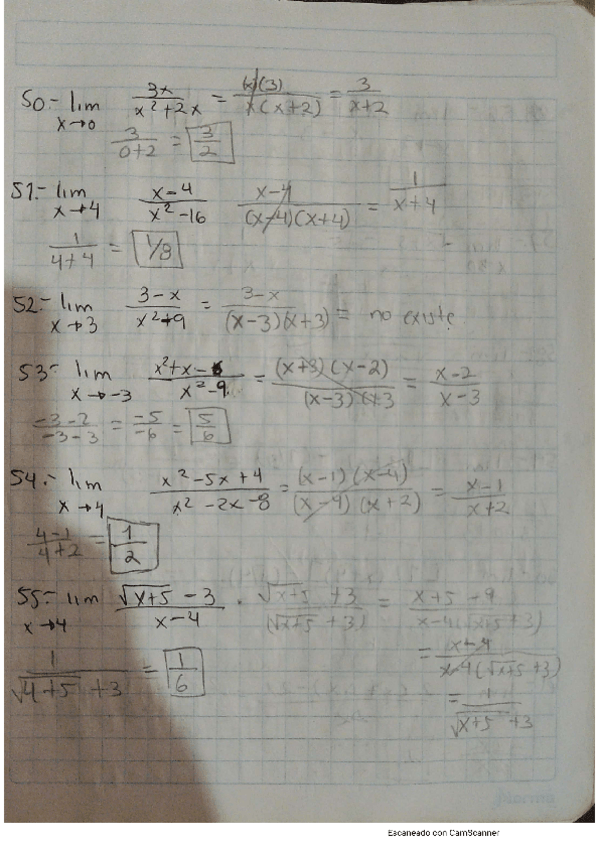 50.- lim x→0 3x/(x²+2x) = (x)(3)/x(x+2) = 3/(x+2)
3/(0+2) = 3/2
51.- lim x→4 (x-4)/(x²-16) (x-4)/(x-4)(x+4) = 1/(x+4)
1/(4+4) = 1/8
52.- lim x→3 (3-x)/(x²-9) = (3-x)/(x-3)(x+3) = no existe
53.- lim x→-3 (x²+x-6)/(x²-9) = (x+3)(x-2)/(x-3)(x+3 = (x-2)/(x-3)
(-3-2)/(-3-3) = -5/-6 = 5/6
54.- lim x→4 (x²-5x+4)/(x²-2x-8) = (x-1)(x-4)/(x-4)(x+2) = (x-1)/(x+2)
(4-1)/(4+2) = 1/2
55.- lim x→4 (√(x+5) -3)/(x-4) · (√(x+5) +3)/(√(x+5) +3) = (x+5-9)/(x-4(√(x+5)+3))
= (x-4)/(x-4(√(x+5)+3))
1/(√(4+5) +3) = 1/6
= 1/(√(x+5) +3)
Escaneado con CamScanner